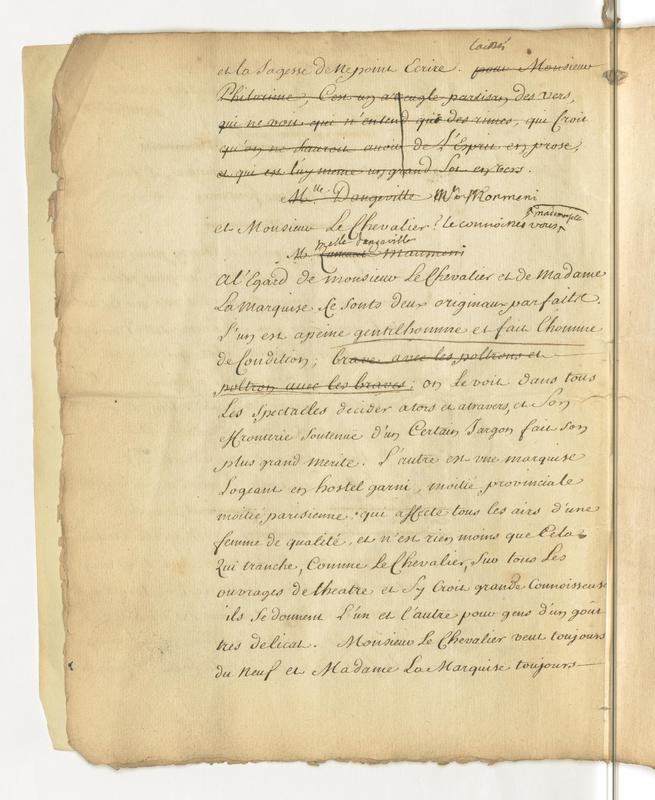 laissés
et la sagesse de ne point Ecrire. pour Monsieur
Philorime, C'est un aveugle partisan des vers,
qui ne voit qui n'entend que des rimes, qui Croit
qu'on ne sauroit avoir de l'Esprit en prose,
et qui est luy meme un grand Sot en vers.
Mlle Dangeville Mr Mormeni
et Monsieur Le Chevalier? le connoissés vous, mademoiselle
melle dangeville
Mr Maumeni
al'Egard de monsieur Le Chevalier et de Madame
La Marquise Ce sonts deux originaux parfaits.
L'un est apeine gentilhomme et fait l'homme
de Condition; brave avec les poltrons et
poltron avec les braves; on Le voit dans tous
Les Spectacles decider ators et atravers, et Son
effronterie Soutenue d'un Certain Jargon fait Son
plus grand merite. L'autre est une marquise
Logeant en hostel garni, moitie provinciale
moitie parisienne, qui affecte tous les airs d'une
femme de qualité, et n'est rien moins que Cela
Qui tranche, Comme Le Chevalier, Sur tous Les
ouvrages de theatre et Sy Croit grande Connoisseuse
ils Se donnent L'un et l'autre pour gens d'un goût
tres delicat. Monsieur Le Chevalier veut toujours
du Neuf et Madame La Marquise toujours